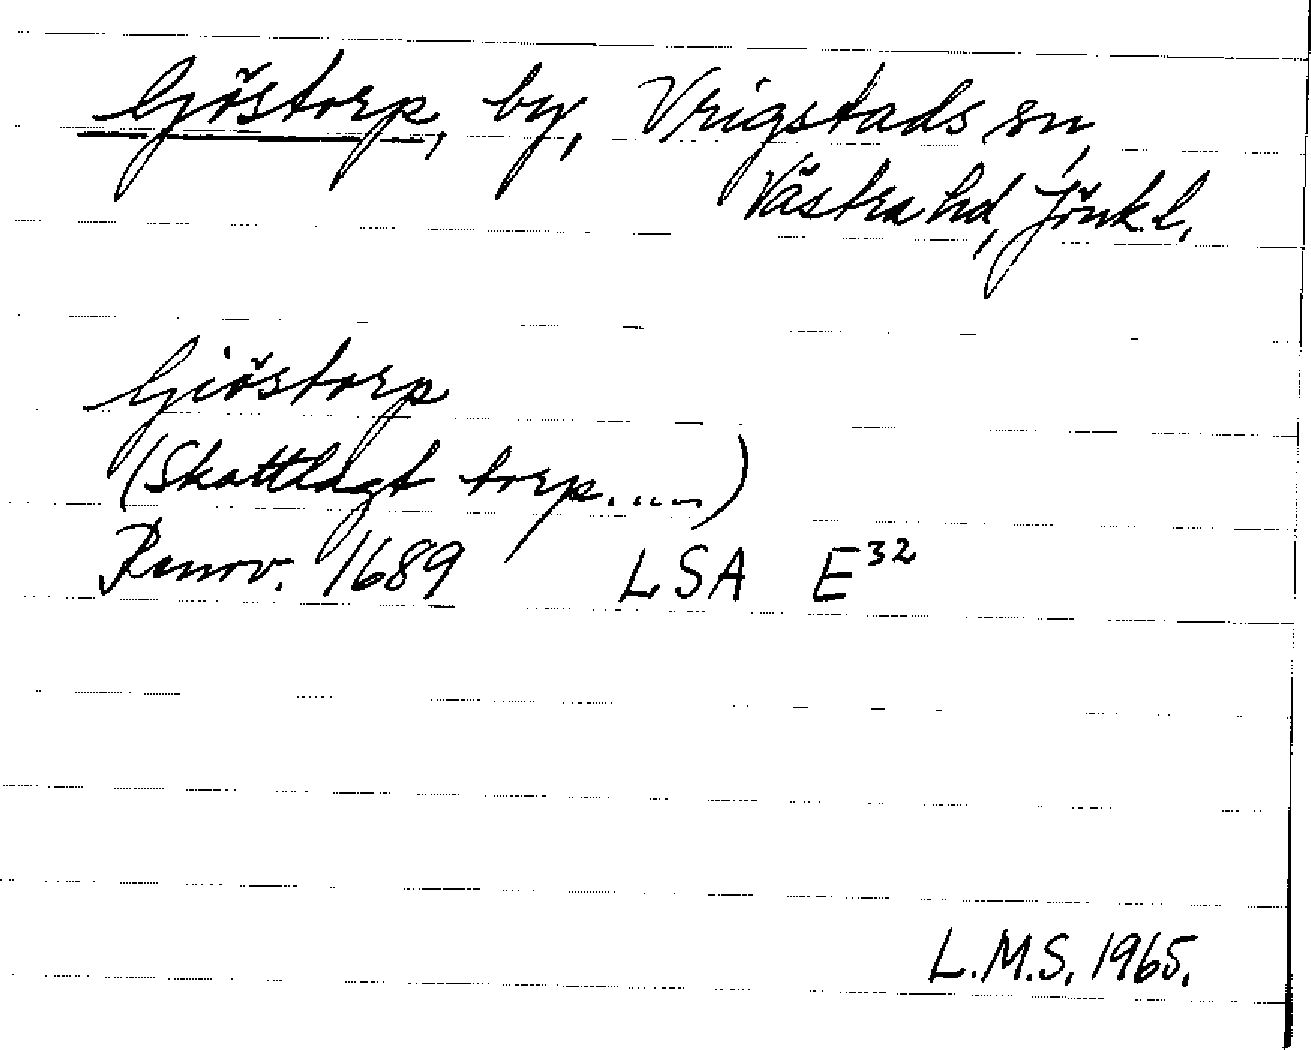 Gjöstorp, by, Vrigstads sn,
Västra hd, Jönk.l.
Giöstorp
(Skattlagt torp.....)
Renov. 1689 LSA E³²
L.M.S. 1965.